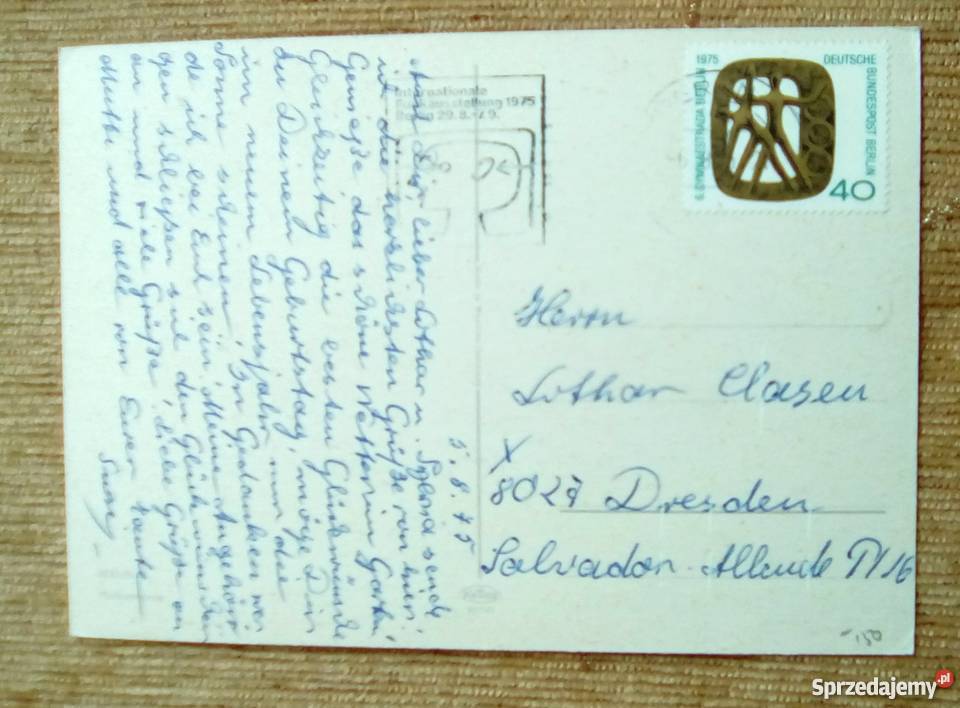 5. 8. 75
Mein lieber Lothar u. Sylvia sende
ich die herzlichsten Grüße von hier.
Genieße das schöne Wetter im Garten.
Gleichzeitig die ersten Glückwünsche
zu Deinem Geburtstag, möge Dir
im neuen Lebensjahr nur die
Sonne scheinen. In Gedanken wer
de ich bei Euch sein. Meine Angehöri
gen schließen sich den Glückwünschen
an und viele Grüße, liebe Grüße an
Mutti und alle von Eurer Tante
Internationale
Funkausstellung 1975
Berlin 29.8.-7.9.
1975
GYMNAESTRADA BERLIN
DEUTSCHE BUNDESPOST BERLIN
40
Herrn
Lothar Clasen
X
8027 Dresden
Salvador-Allende Pl 16
-,50
Sprzedajemy.pl